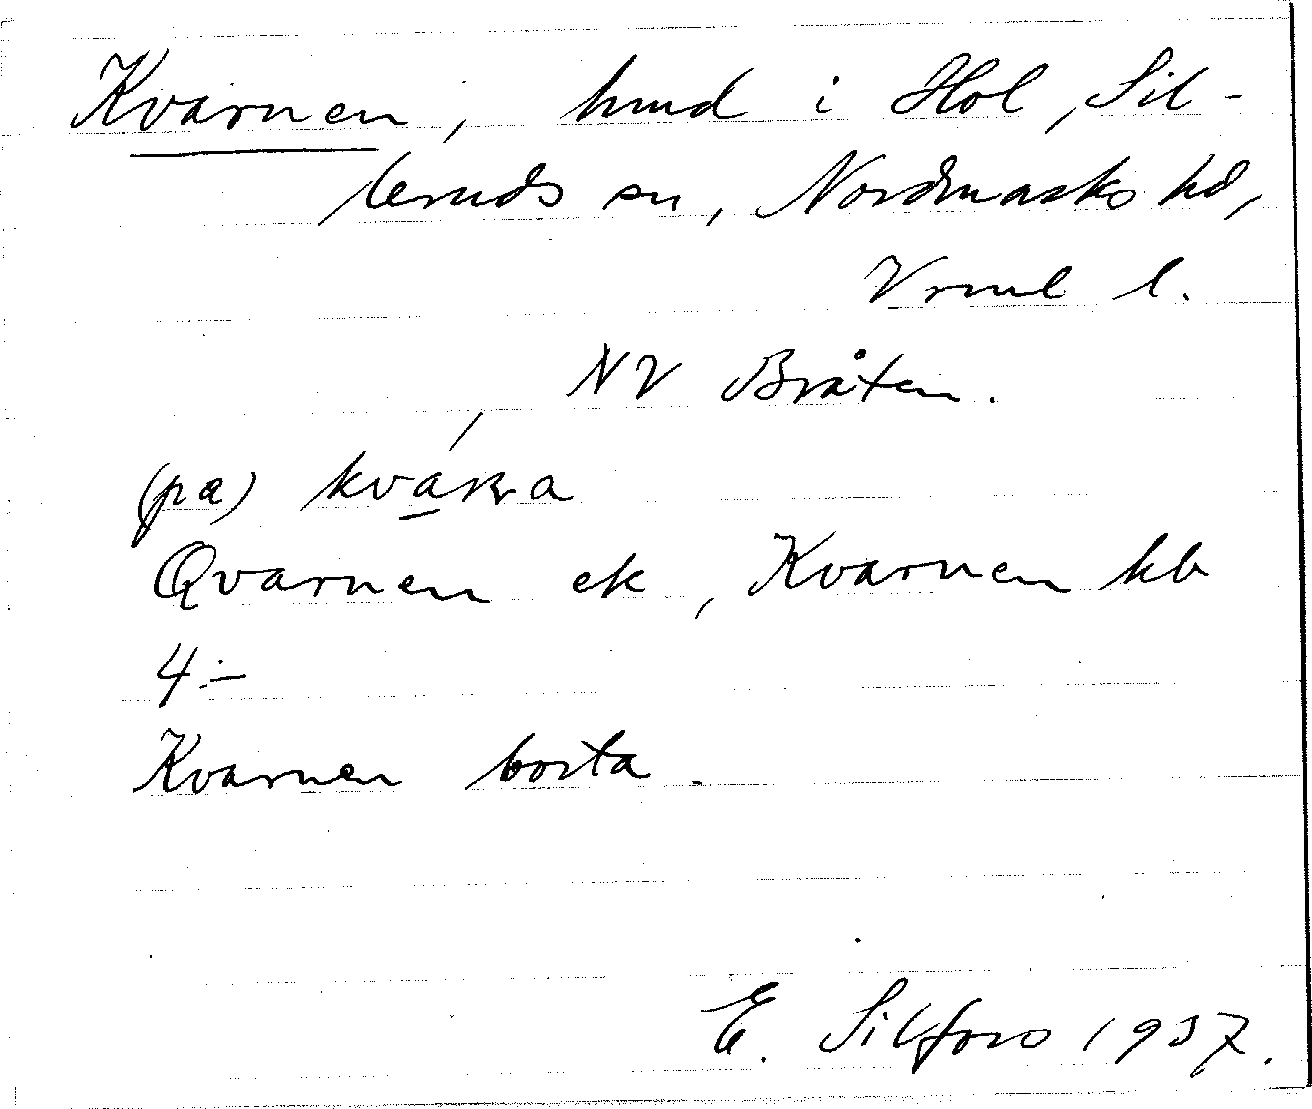 Kvarnen, hmd i Hol, Sil-
leruds sn, Nordmarks hd,
Vrml l.
NV Bråten.
(pa)
Qvarnen ek, Kvarnen kb
4:-
Kvarnen borta.
E. Silfors 1937.